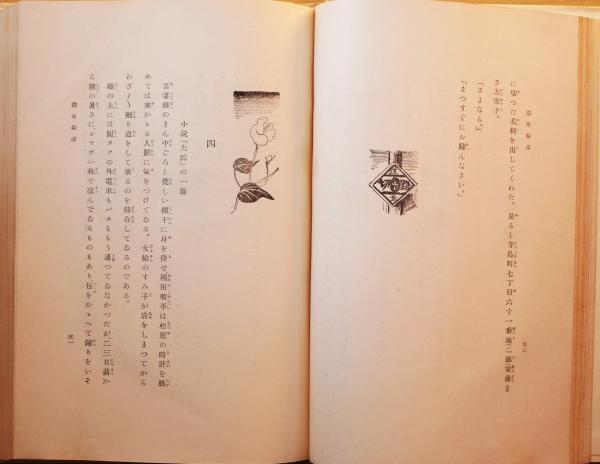 濹東綺譚
五〇
に切つた名刺を出してくれた。見ると寺島町七丁目六十一番地(二部)安藤ま
さ方雪子。
「さよなら。」
「まつすぐにお歸んなさい。」
四
小説「失踪」の一節
吾妻橋のまん中ごろと覺しい欄干に身を倚せ、種田順平は松屋の時計を眺
めては來かゝる人影に氣をつけてゐる。女給のすみ子が店をしまつてから
わざ〱廻り道をして來るのを待合してゐるのである。
橋の上には圓タクの外電車もバスももう通つてゐなかつたが、二三日前か
ら俄の暑さに、シャツ一枚で凉んでゐるものもあり、包をかゝへて歸りをいそ
濹東綺譚
五一